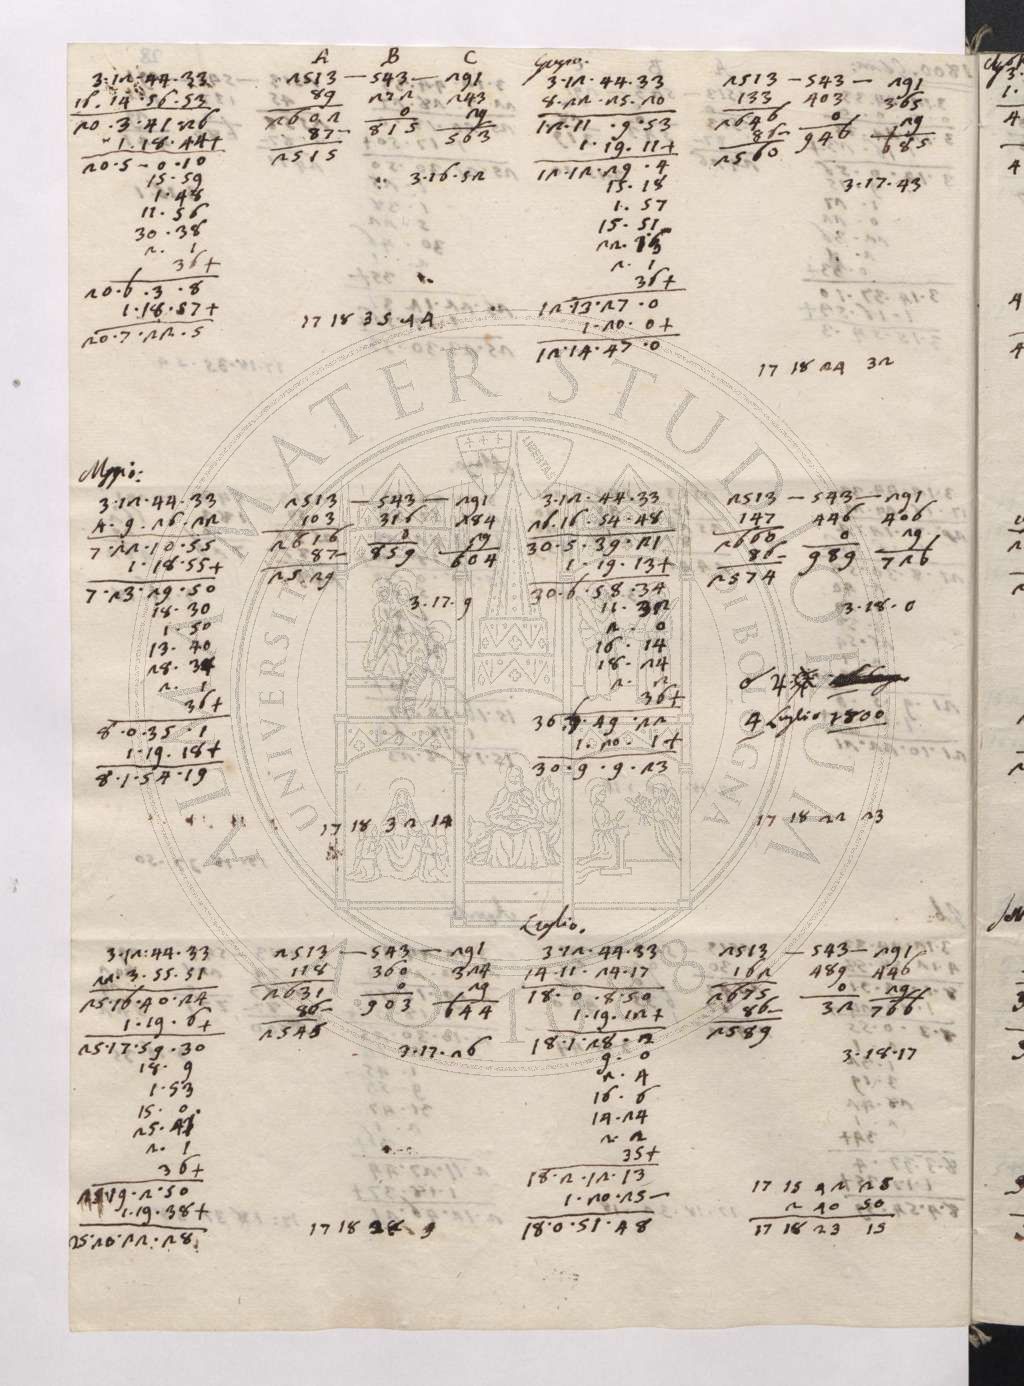 3.12.44.33
16.14.56.53
20.3.41.26
1.18.44+
20.5-0.10
15.59
1.48
11.56
30.38
2. 1
36+
20.6.3.8
1.18.57+
20.7.22.5
A B C
2513 — 543 — 291
89 272 243
2602 0 29
87- 815 563
2515
3.16.52
17 18 35 44
Giugno.
3.12.44.33
8.22.25.20
12.11.9.53
1.19.11+
12.12.29.4
15.18
1.57
15.51
22.13
2. 1
36+
12.13.27.0
1.20.0+
12.14.47.0
2513 — 543 — 291
133 403 365
2646 0 29
86- 946 685
2560
3.17.43
17 18 24 32
Maggio:
3.12.44.33
4.9.26.22
7.22.10.55
1.18.55+
7.23.29.50
18.30
1.50
13.40
28.34
2. 1
36+
8.0.35.1
1.19.18+
8.1.54.19
2513 — 543 — 291
103 316 284
2616 0 29
87- 859 604
2529
3.17.9
17 18 32 14
3.12.44.33
26.16.54.48
30.5.39.21
1.19.13+
30.6.58.34
11.32
2. 0
16.14
18.24
2. 2
36+
30.7.49.22
1.20.1+
30.9.9.23
2513 — 543 — 291
147 446 406
2660 0 29
86- 989 726
2574
3.18.0
4 Luglio 1800
17 18 22 23
3.12.44.33
22.3.55.51
25.16.40.24
1.19.6+
25.17.59.30
18.9
1.53
15.0
25.41
2. 1
36+
25.19.2.50
1.19.38+
25.20.22.28
2513 — 543 — 291
118 360 324
2631 0 29
86- 903 644
2545
3.17.26
17 18 28 9
Luglio.
3.12.44.33
14.11.24.17
18.0.8.50
1.19.12+
18.1.28.2
9.0
2.4
16.6
14.24
2. 2
35+
18.2.12.13
1.20.25-
18.0.51.48
2513 — 543 — 291
162 489 446
2675 0 29
86- 32 766
2589
3.18.17
17 15 42 25
2 40 50
17 18 23 15
ALMA MATER STUDIORUM
UNIVERSITÀ DI BOLOGNA
A.D. 1088